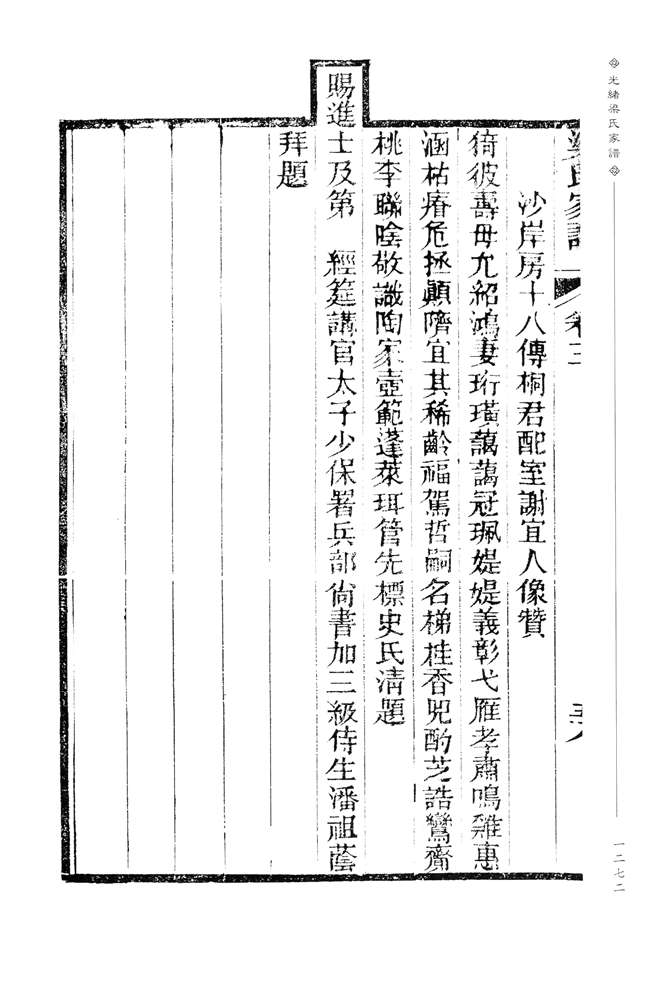 光緒梁氏家譜
一二七二
梁氏家譜 卷三
沙岸房十八傳桐君配室謝宜人像贊
猗彼壽母允紹鴻妻珩璜藹藹冠珮媞媞義彰弋雁孝肅鳴雞惠
涵枯瘠危拯顛隮宜其稀齡福駕哲嗣名梯桂香兕酌芝誥鸞齎
桃李聯陰敬識陶家壺範蓬萊珥管先標史氏淸題
賜進士及第 經筵講官太子少保署兵部尙書加三級侍生潘祖蔭
拜題